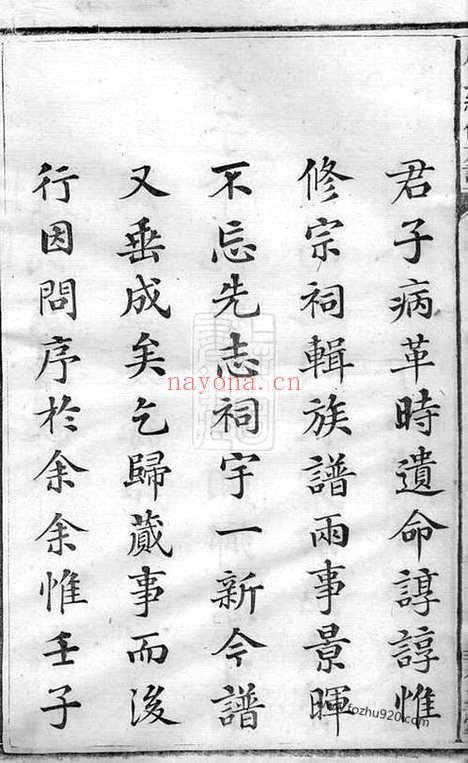 君子病革時遺命諄諄惟
修宗祠輯族譜兩事景暉
不忘先志祠宇一新今譜
又垂成矣乞歸蕆事而後
行因問序於余余惟壬子
nayona.cn
fozhu920.com